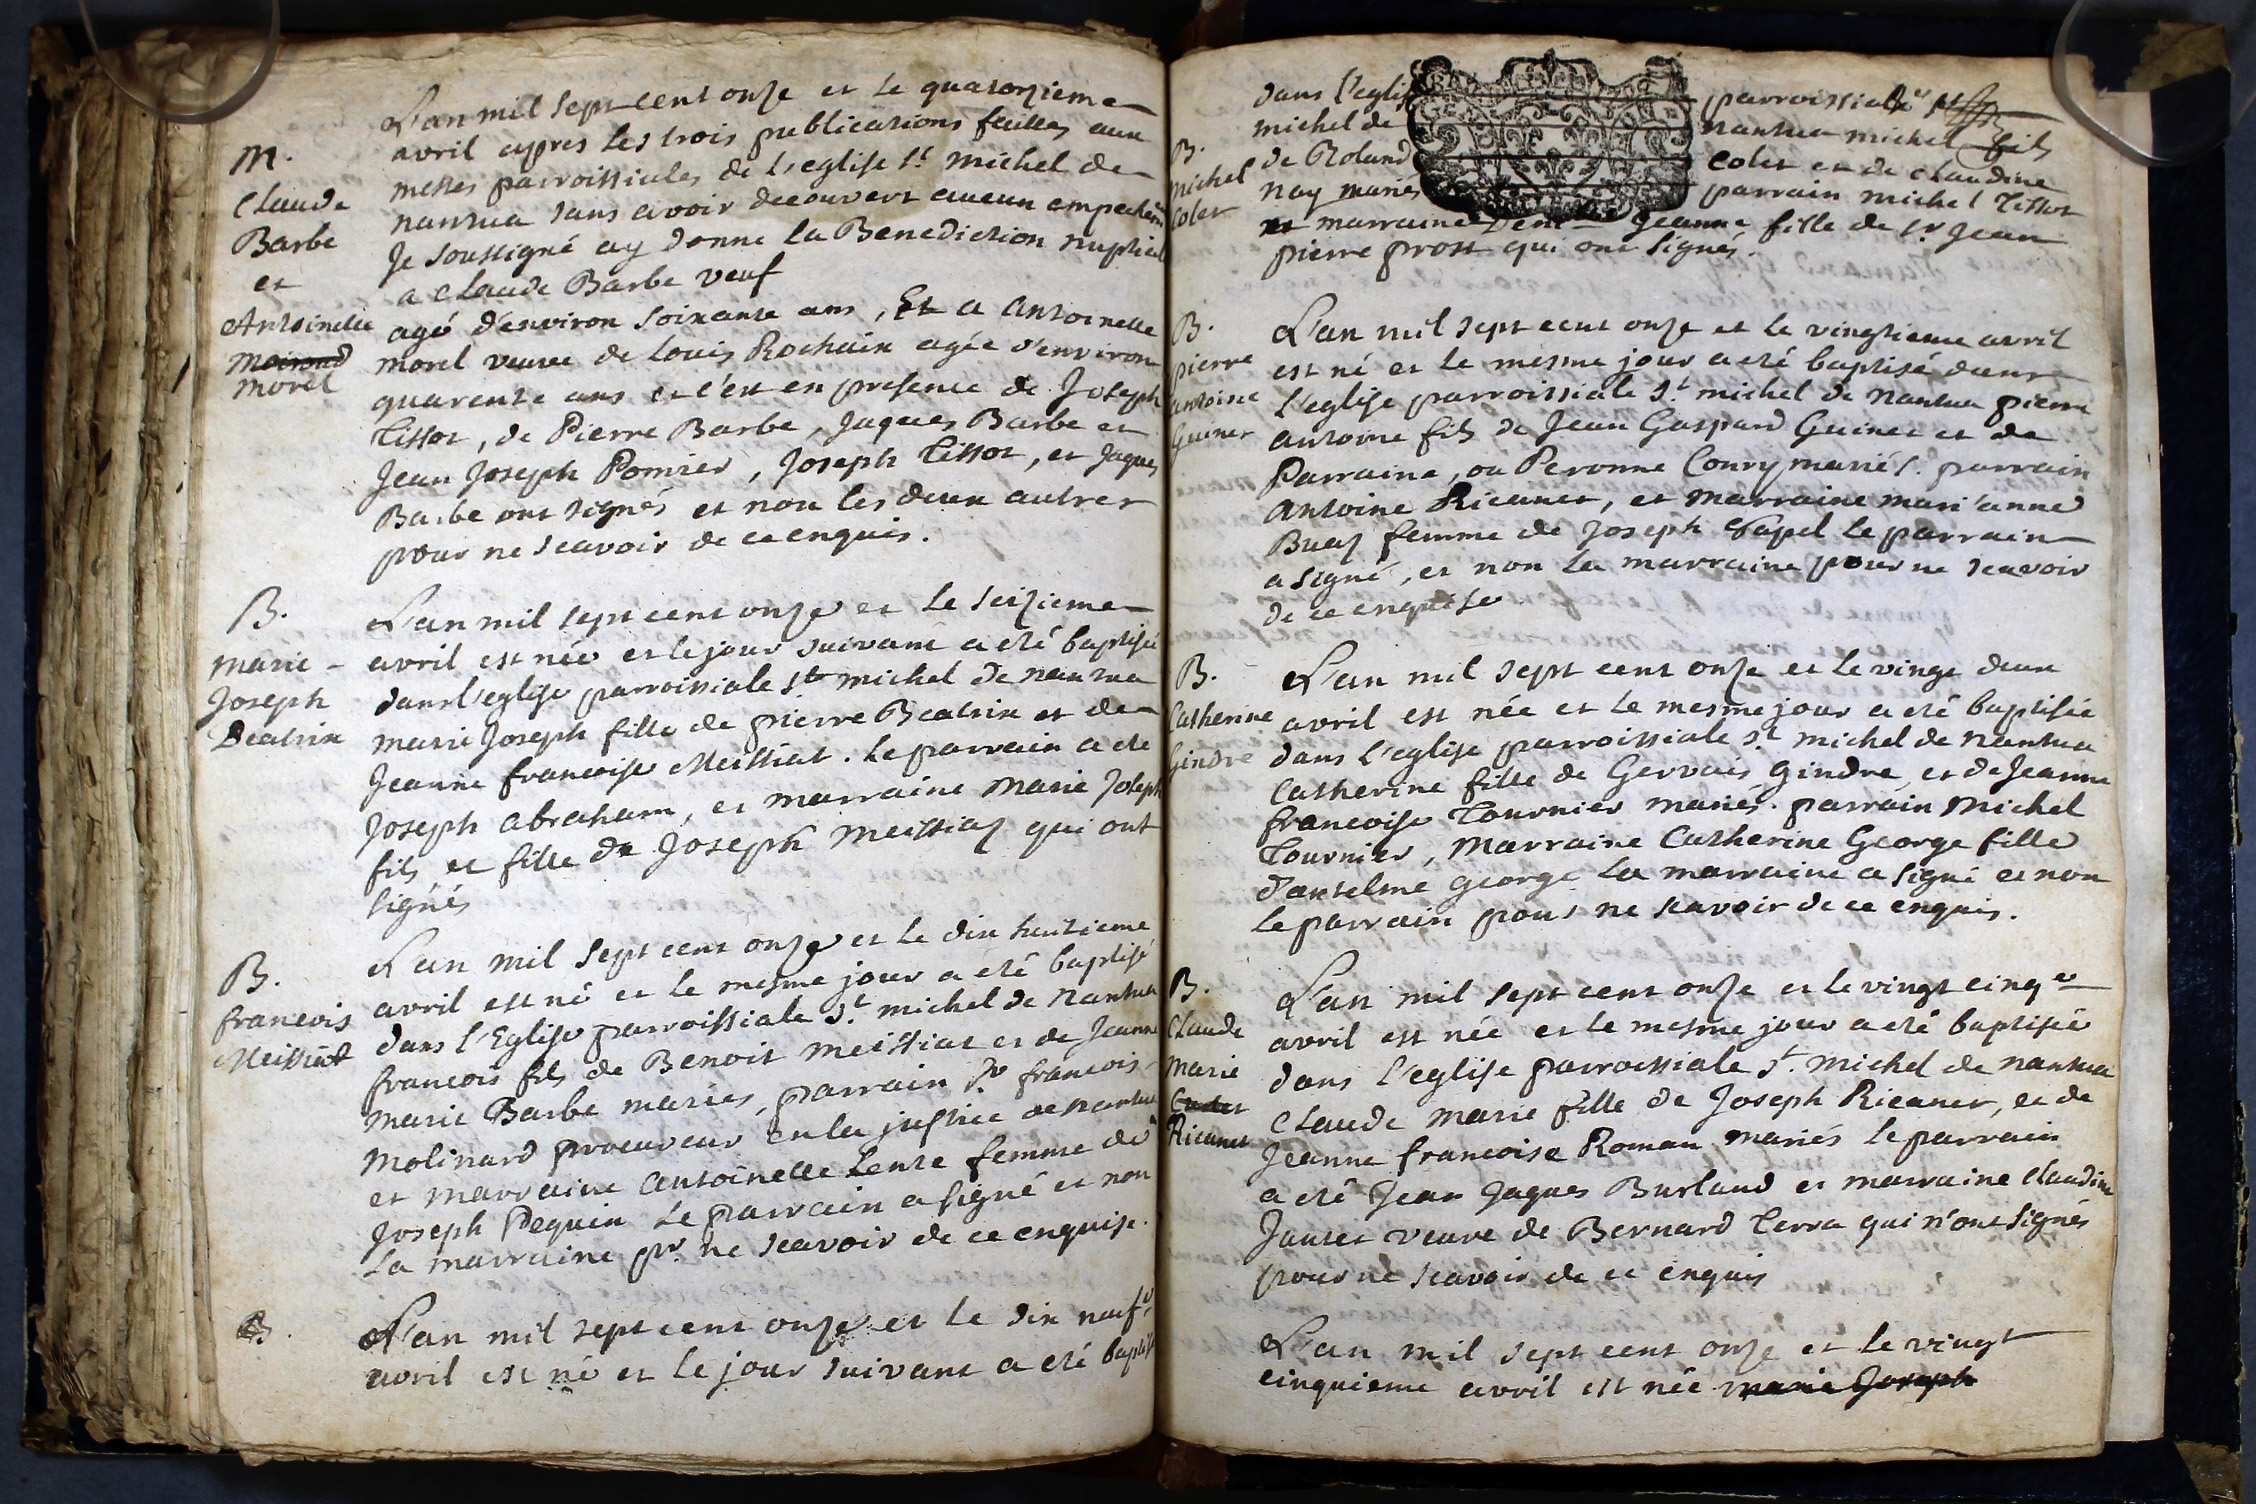 M.
Claude
Barbe
et
Antoinette
Moirond
morel
L'an mil sept cent onze et le quatorzieme
avril apres les trois publications faittes aux
messes parroissiales de l'eglise st michel de
nantua sans avoir decouvert aucun empechem
Je soussigné ay donne la Benediction nuptial
a Claude Barbe veuf
agé d'environ soixante ans, Et a antoinette
morel veuve de Louis Rochaix agée d'environ
quarente ans et c'est en presence de Joseph
Tissot, de Pierre Barbe, Jaques Barbe et
Jean Joseph Pomier, Joseph Tissot, et Jaques
Barbe ont signés et non les deux autres
pour ne scavoir de ce enquis.
B.
marie-
Joseph
Beatrix
L'an mil sept cent onze et le seizieme
avril est née et le jour suivant a eté baptisée
dans l'eglise parroissiale st michel de nantua
marie Joseph fille de pierre Beatrix et de
Jeanne francoise Meissiat. le parrain a ete
Joseph abraham, et marraine marie Joseph
fils et fille de Joseph meissiaz qui ont
signés
B.
francois
Meissiat
L'an mil sept cent onze et le dix huitieme
avril est né et le mesme jour a eté baptisé
dans l'Eglise parroissiale st michel de nantua
francois fils de Benoit meissiat et de Jeanne
marie Barbe mariés, parrain Sr francois
molinard procureur en la justice de nantua
et marraine antoinette Lente femme de
Joseph Pequin le parrain a signé et non
la marraine pr ne scavoir de ce enquise.
B.
L'an mil sept cent onze et le dix neufe
avril est né et le jour suivant a eté baptisé
B.
Michel
Colet
dans l'eglise parroissiale st
michel de nantua michel fils
de Roland Colet et de Claudine
Nay mariés parrain michel Tissot
et marraine Jeanne fille de sr Jean
pierre prost qui ont signés.
B.
pierre
antoine
Guinet
L'an mil sept cent onze et le vingtieme avril
est né et le mesme jour a eté baptisé dans
l'eglise parroissiale st michel de nantua pierre
antoine fils de Jean Gaspard Guinet et de
Parraine, ou Peronne Coury mariés. parrain
antoine Ricanet, et marraine mari'anne
Buaz femme de Joseph Tapel le parrain
a signé, et non la marraine pour ne scavoir
de ce enquise
B.
Catherine
Gindre
L'an mil sept cent onze et le vingt deux
avril est née et le mesme jour a eté baptisée
dans l'eglise parroissiale st michel de nantua
Catherine fille de Gervais Gindre, et de Jeanne
francoise Tournier mariés. parrain michel
Tournier, marraine Catherine George fille
d'antselme george la marraine a signé et non
le parrain pour ne scavoir de ce enquis.
B.
Claude
Marie
Ricanet
L'an mil sept cent onze et le vingt cinqe
avril est née et le mesme jour a eté baptisée
dans l'eglise parroissiale st michel de nantua
Claude marie fille de Joseph Ricanet, et de
Jeanne francoise Roman mariés le parrain
a eté Jean Jaques Burland et marraine Claudine
Jantet veuve de Bernard Terra qui n'ont signés
pour ne scavoir de ce enquis
L'an mil sept cent onze et le vingt
cinquieme avril est née marie Joseph